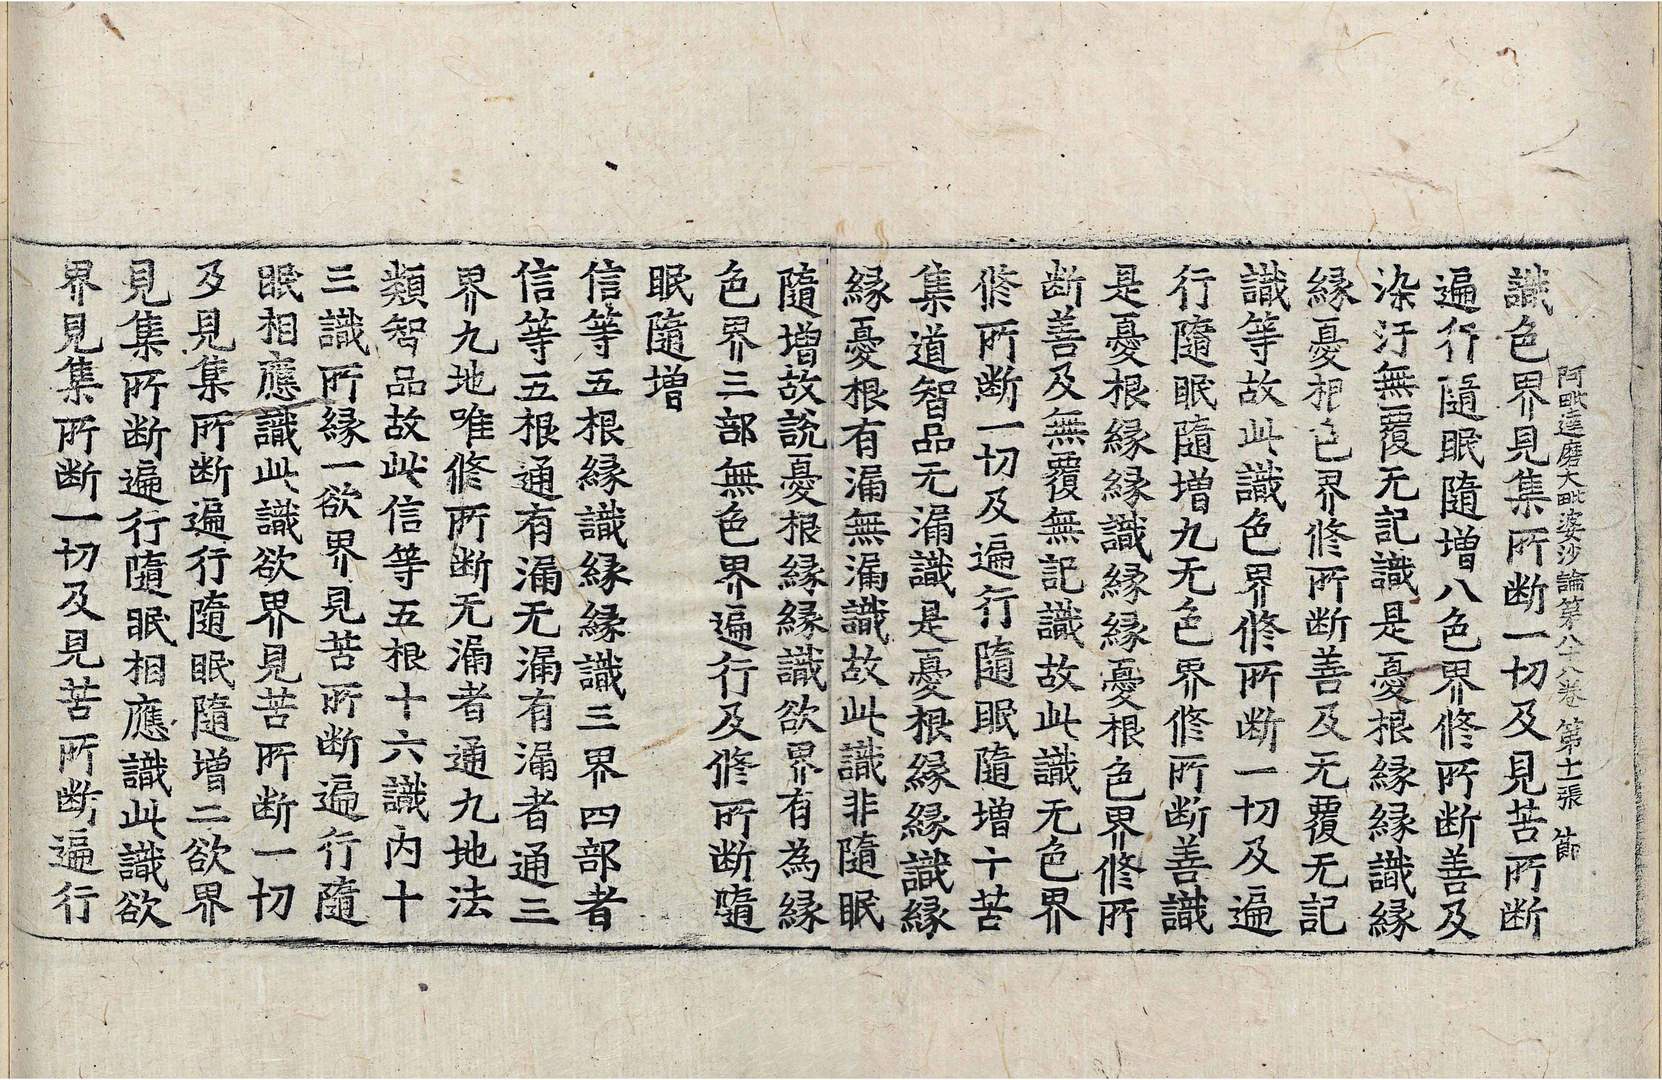 阿毗達磨大毗婆沙論第八十八卷 第十二張 節
識色界見集所断一切及見苦所断
遍行隨眠隨增八色界修所断善及
染汙無覆无記識是憂根緣緣識緣
緣憂根色界修所断善及无覆无記
識等故此識色界修所断一切及遍
行隨眠隨增九无色界修所断善識
是憂根緣緣識緣緣憂根色界修所
断善及無覆無記識故此識无色界
修所断一切及遍行隨眠隨增十苦
集道智品无漏識是憂根緣緣識緣
緣憂根有漏無漏識故此識非隨眠
隨增故說憂根緣緣識欲界有為緣
色界三部無色界遍行及修所断隨
眠隨增
信等五根緣識緣緣識三界四部者
信等五根通有漏无漏有漏者通三
界九地唯修所断无漏者通九地法
類智品故此信等五根十六識內十
三識所緣一欲界見苦所断遍行隨
眠相應識此識欲界見苦所断一切
及見集所断遍行隨眠隨增二欲界
見集所断遍行隨眠相應識此識欲
界見集所断一切及見苦所断遍行